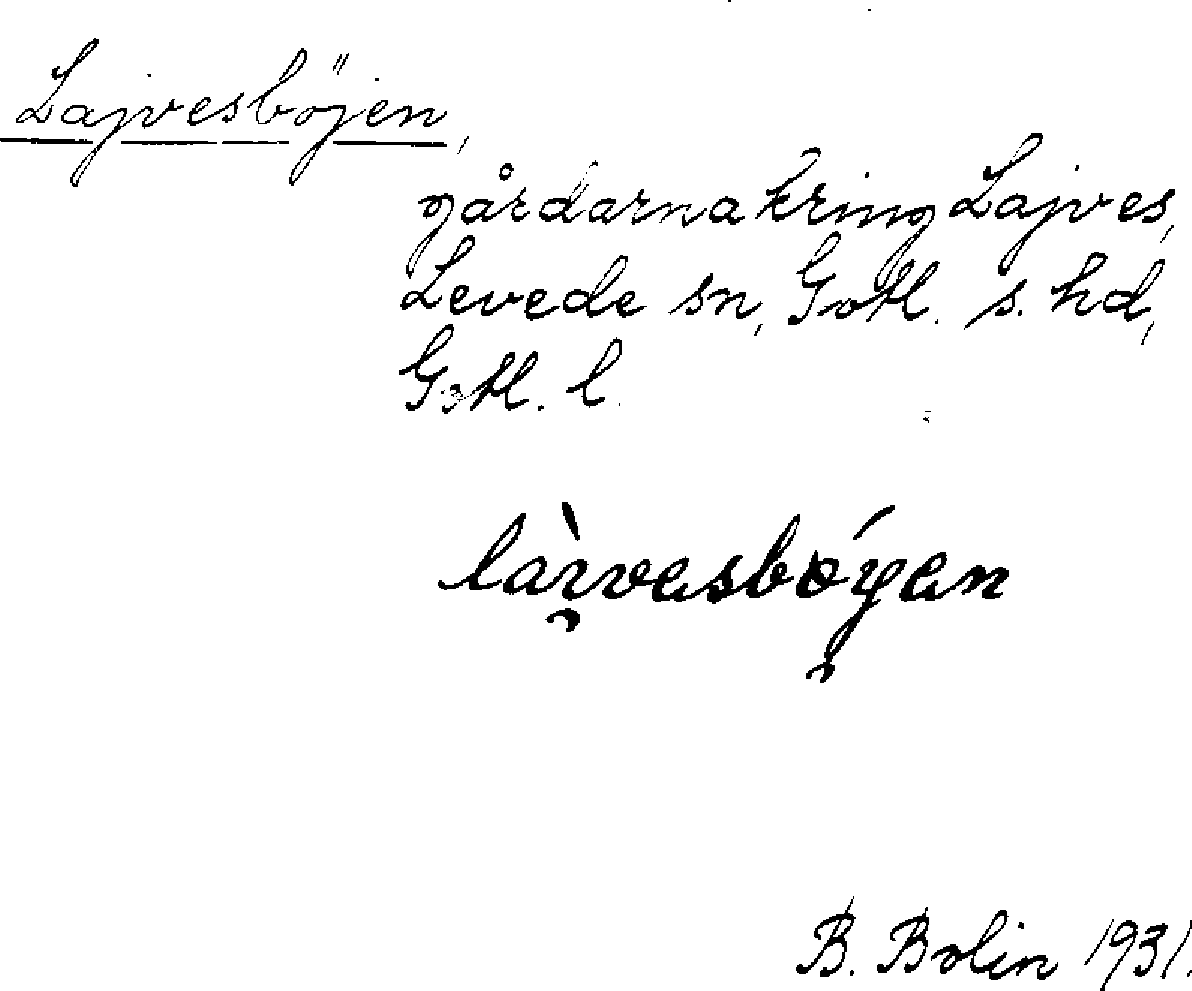 Lajvesböjen,
gårdarna kring Lajves,
Levede sn, Gotl. s. hd,
Gotl. l.
B. Bolin 1931.